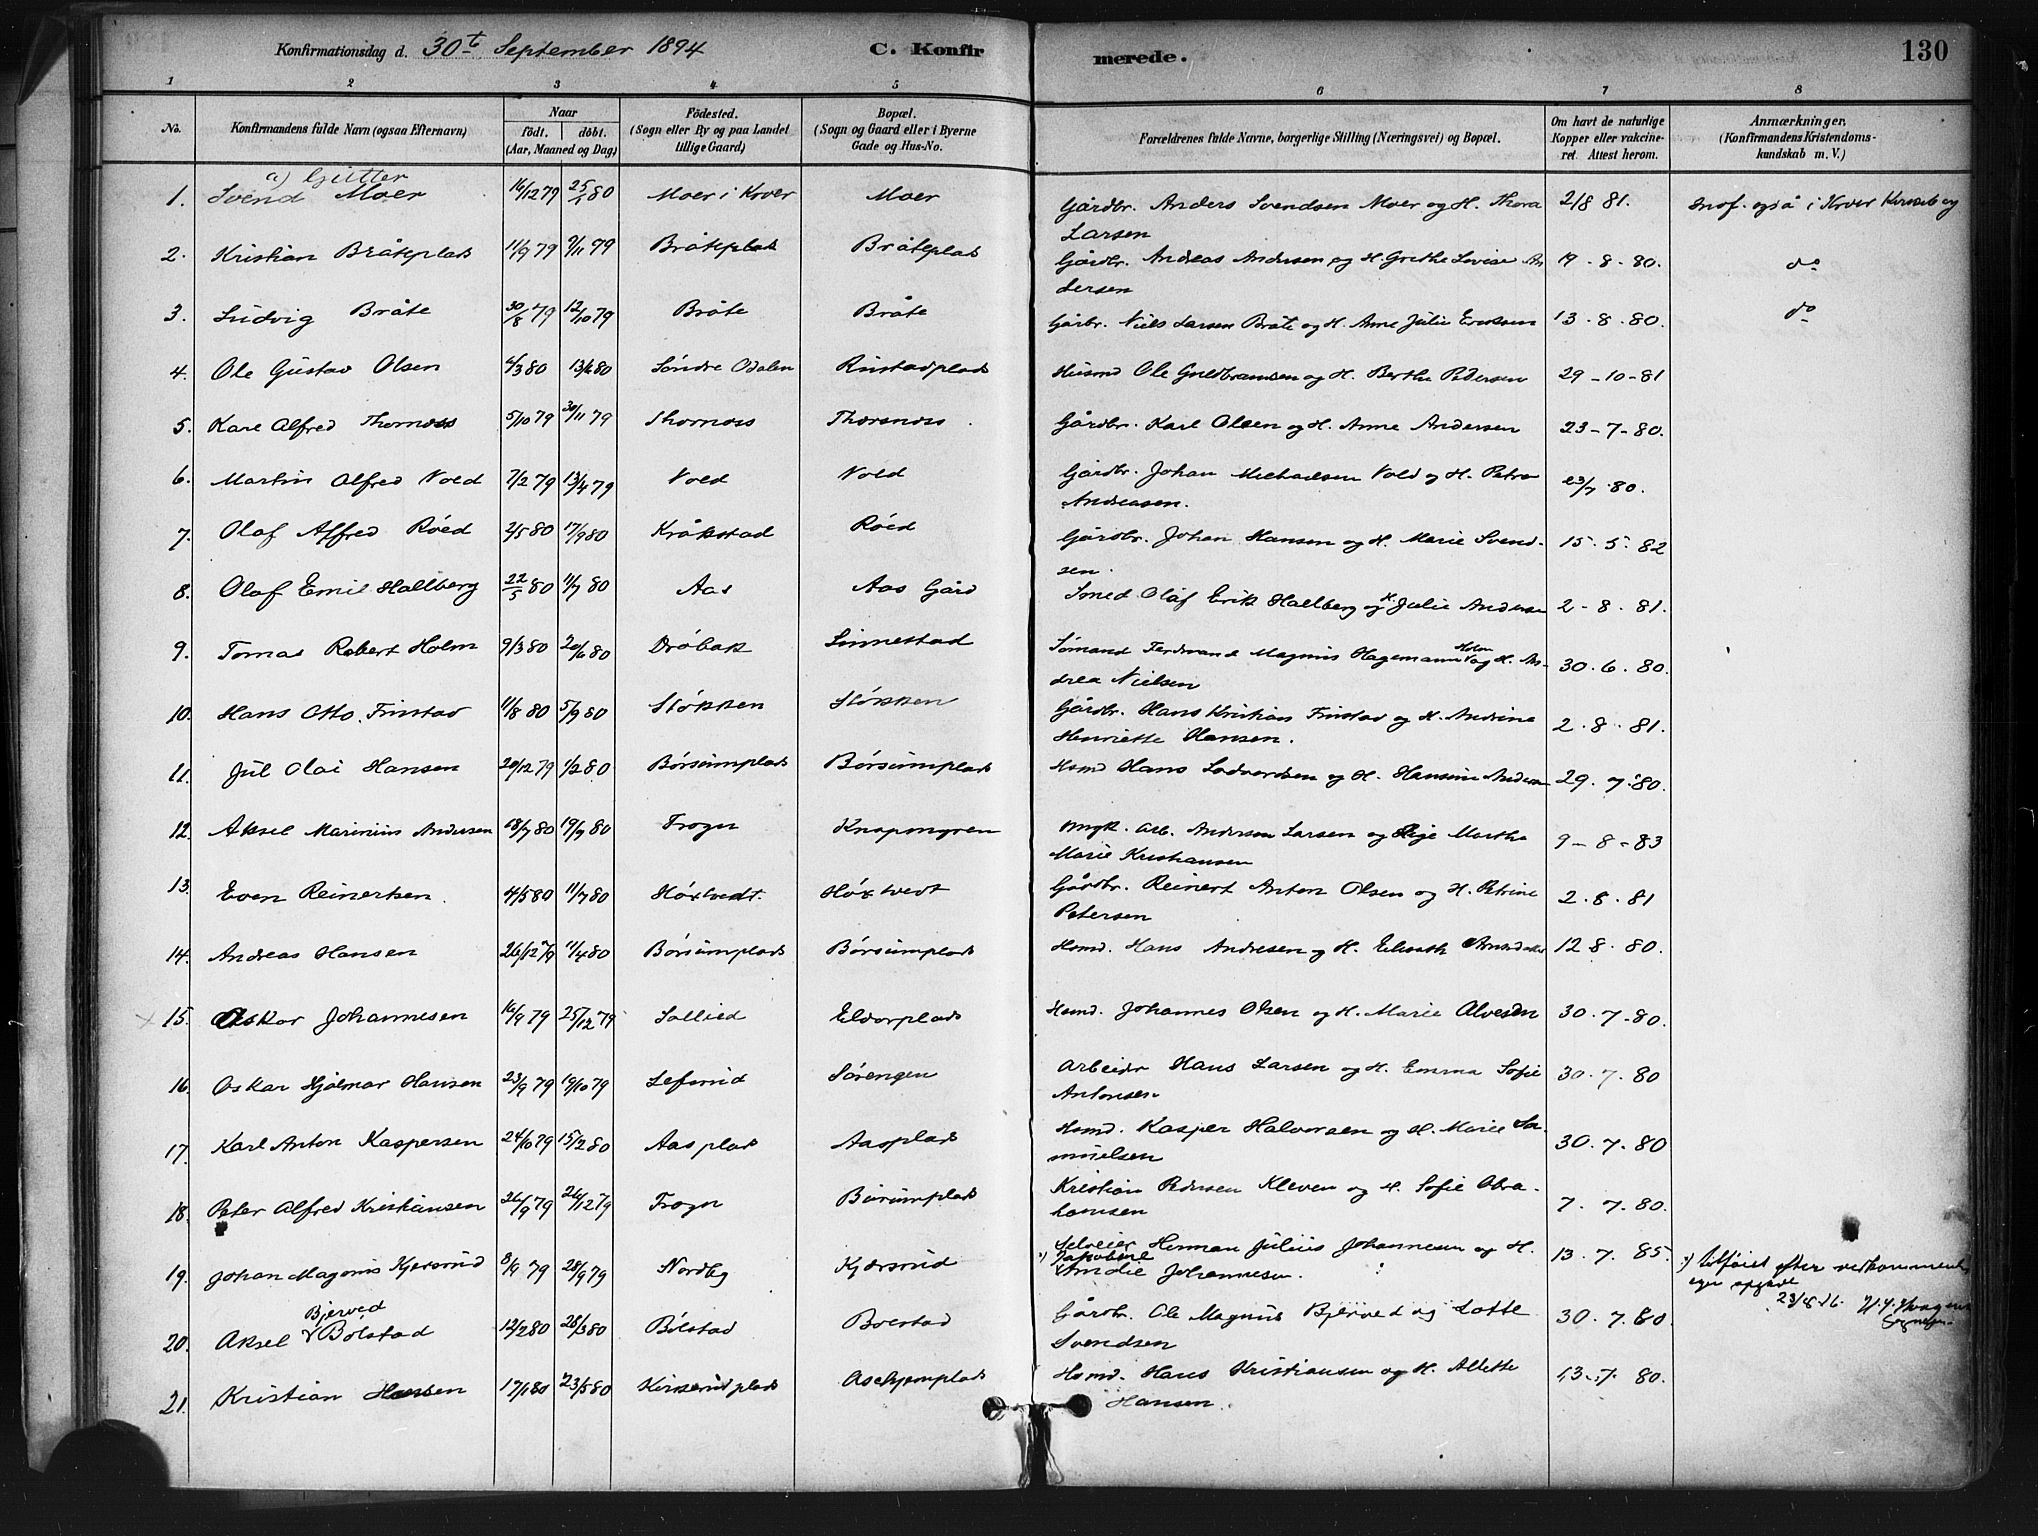 Konfirmationsdag d. 30t September 1894 C. Konfirmerede. 130
1 2 3 4 5 6 7 8
No. Konfirmandens fulde Navn (ogsaa Efternavn) Naar födt. döbt. (Aar, Maaned og Dag) Födested. (Sogn eller By og paa Landet tillige Gaard) Bopæl. (Sogn og Gaard eller i Byerne Gade og Hus-No. Forældrenes fulde Navne, borgerlige Stilling (Næringsvei) og Bopæl. Om havt de naturlige Kopper eller vakcineret. Attest herom. Anmærkninger. (Konfirmandens Kristendomskundskab m. V.)
a) Gutter
1. Svend Moer 16/12 79 25/1 80 Moer i Kroer Moer Gårdbr. Anders Svendsen Moer og H. Thora Larsen 2/8 81. også i Kroer
2. Kristian Bråteplads 11/9 79 9/11 79 Bråteplads Bråteplads Gårdbr. Andreas Andersen og H. Grethe Lovise Andersen 19-8-80. do
3. Ludvig Bråte 30/8 79 12/10 79 Bråte Bråte Gårbr. Niels Larsen Bråte og H. Anne Julie Eriksen 13-8-80. do
4. Ole Gustav Olsen 4/3 80 13/6 80 Søndre Odalen Rustadplads Husmd Ole Guldbransen og H. Berthe Pedersen 29-10-81
5. Karl Alfred Thornæss 5/10 79 30/11 79 Thornæss Thorsnæss Gårdbr. Karl Olsen og H. Anne Andersen 23-7-80.
6. Martin Alfred Vold 7/2 79 13/4 79 Vold Vold Gårdbr. Johan Michaelsen Vold og H. Petra Andreasen. 23/7 80.
7. Olaf Alfred Röed 2/5 80 17/9 80 Kråkstad Röed Gårdbr. Johan Hansen og H. Marie Svendsen. 15-5-82
8. Olaf Emil Hallberg 22/5 80 11/7 80 Aas Aas Gård Smed Olaf Erik Hallberg og H. Julie Andersen 2-8-81.
9. Tomas Robert Holm 9/3 80 20/6 80 Dröbak Sinnestad Sømand Ferdinand Magnus Hagemann Holm og H. Andrea Nielsen 30.6.80.
10. Hans Otto Finstad 11/8 80 5/9 80 Stökken Stökken Gårdbr. Hans Kristian Finstad og H. Andrine Henriette Hansen. 2.8.81.
11. Jul Olai Hansen 20/12 79 1/2 80 Börsumplads Börsumplads Hsmd Hans Lodvardsen og H. Hansine Andersen 29.7.80.
12. Aksel Marinius Andersen 18/7 80 19/9 80 Frogn Knapmyren Ungk. Arb. Anderson Larsen og Pige Martha Marie Kristiansen 9-8-83
13. Even Reinertsen 4/5 80 11/7 80 Höxtvedt. Höxtvedt Gårdbr. Reinert Anton Olsen og H. Petrine Petersen 2.8.81
14. Andreas Hansen 26/12 79 11/4 80 Börsumplads Börsumplads Hsmd. Hans Andresen og H. Elisabeth 12 8.80.
15. Oskar Johannesen 16/9 79 25/12 79 Sollied Eldorplads Hsmd. Johannes Olsen og H. Marie Alvesen 30.7.80.
16. Oskar Hjalmar Hansen 23/9 79 19/10 79 Lefsrud Sörengen Arbeidr Hans Larsen og H. Emma Sofie Antonsen 30.7.80
17. Karl Anton Kaspersen 24/10 79 15/2 80 Aasplads Aasplads Hsmd. Kasper Halvorsen og H. Marie Samuelsen 30.7.80
18. Peter Alfred Kristiansen 26/9 79 26/12 79 Frogn Burumplads Kristian Pedersen Kleven og H. Sofie Abrahamsen 7.7.80.
19. Johan Magnus Kjersrud 8/9 79 28/9 79 Nordby Kjærsrud Selveier Herman Julius Johannesen og H. Jakobine Amalie Johannesen. 13.7.85. Tilføiet efter vedkommendes egen opgave 23/8 16.
20. Aksel Bjerved Bölstad 12/2 80 28/3 80 Bölstad Bolstad Gårdbr. Ole Magnus Bjerved og Lotte Svendsen 30.7.80.
21. Kristian Hansen 17/1 80 23/5 80 Kirserudplads Aschjemplads Hsmd. Hans Kristiansen og H. Allette Hansen. 13.7.80.